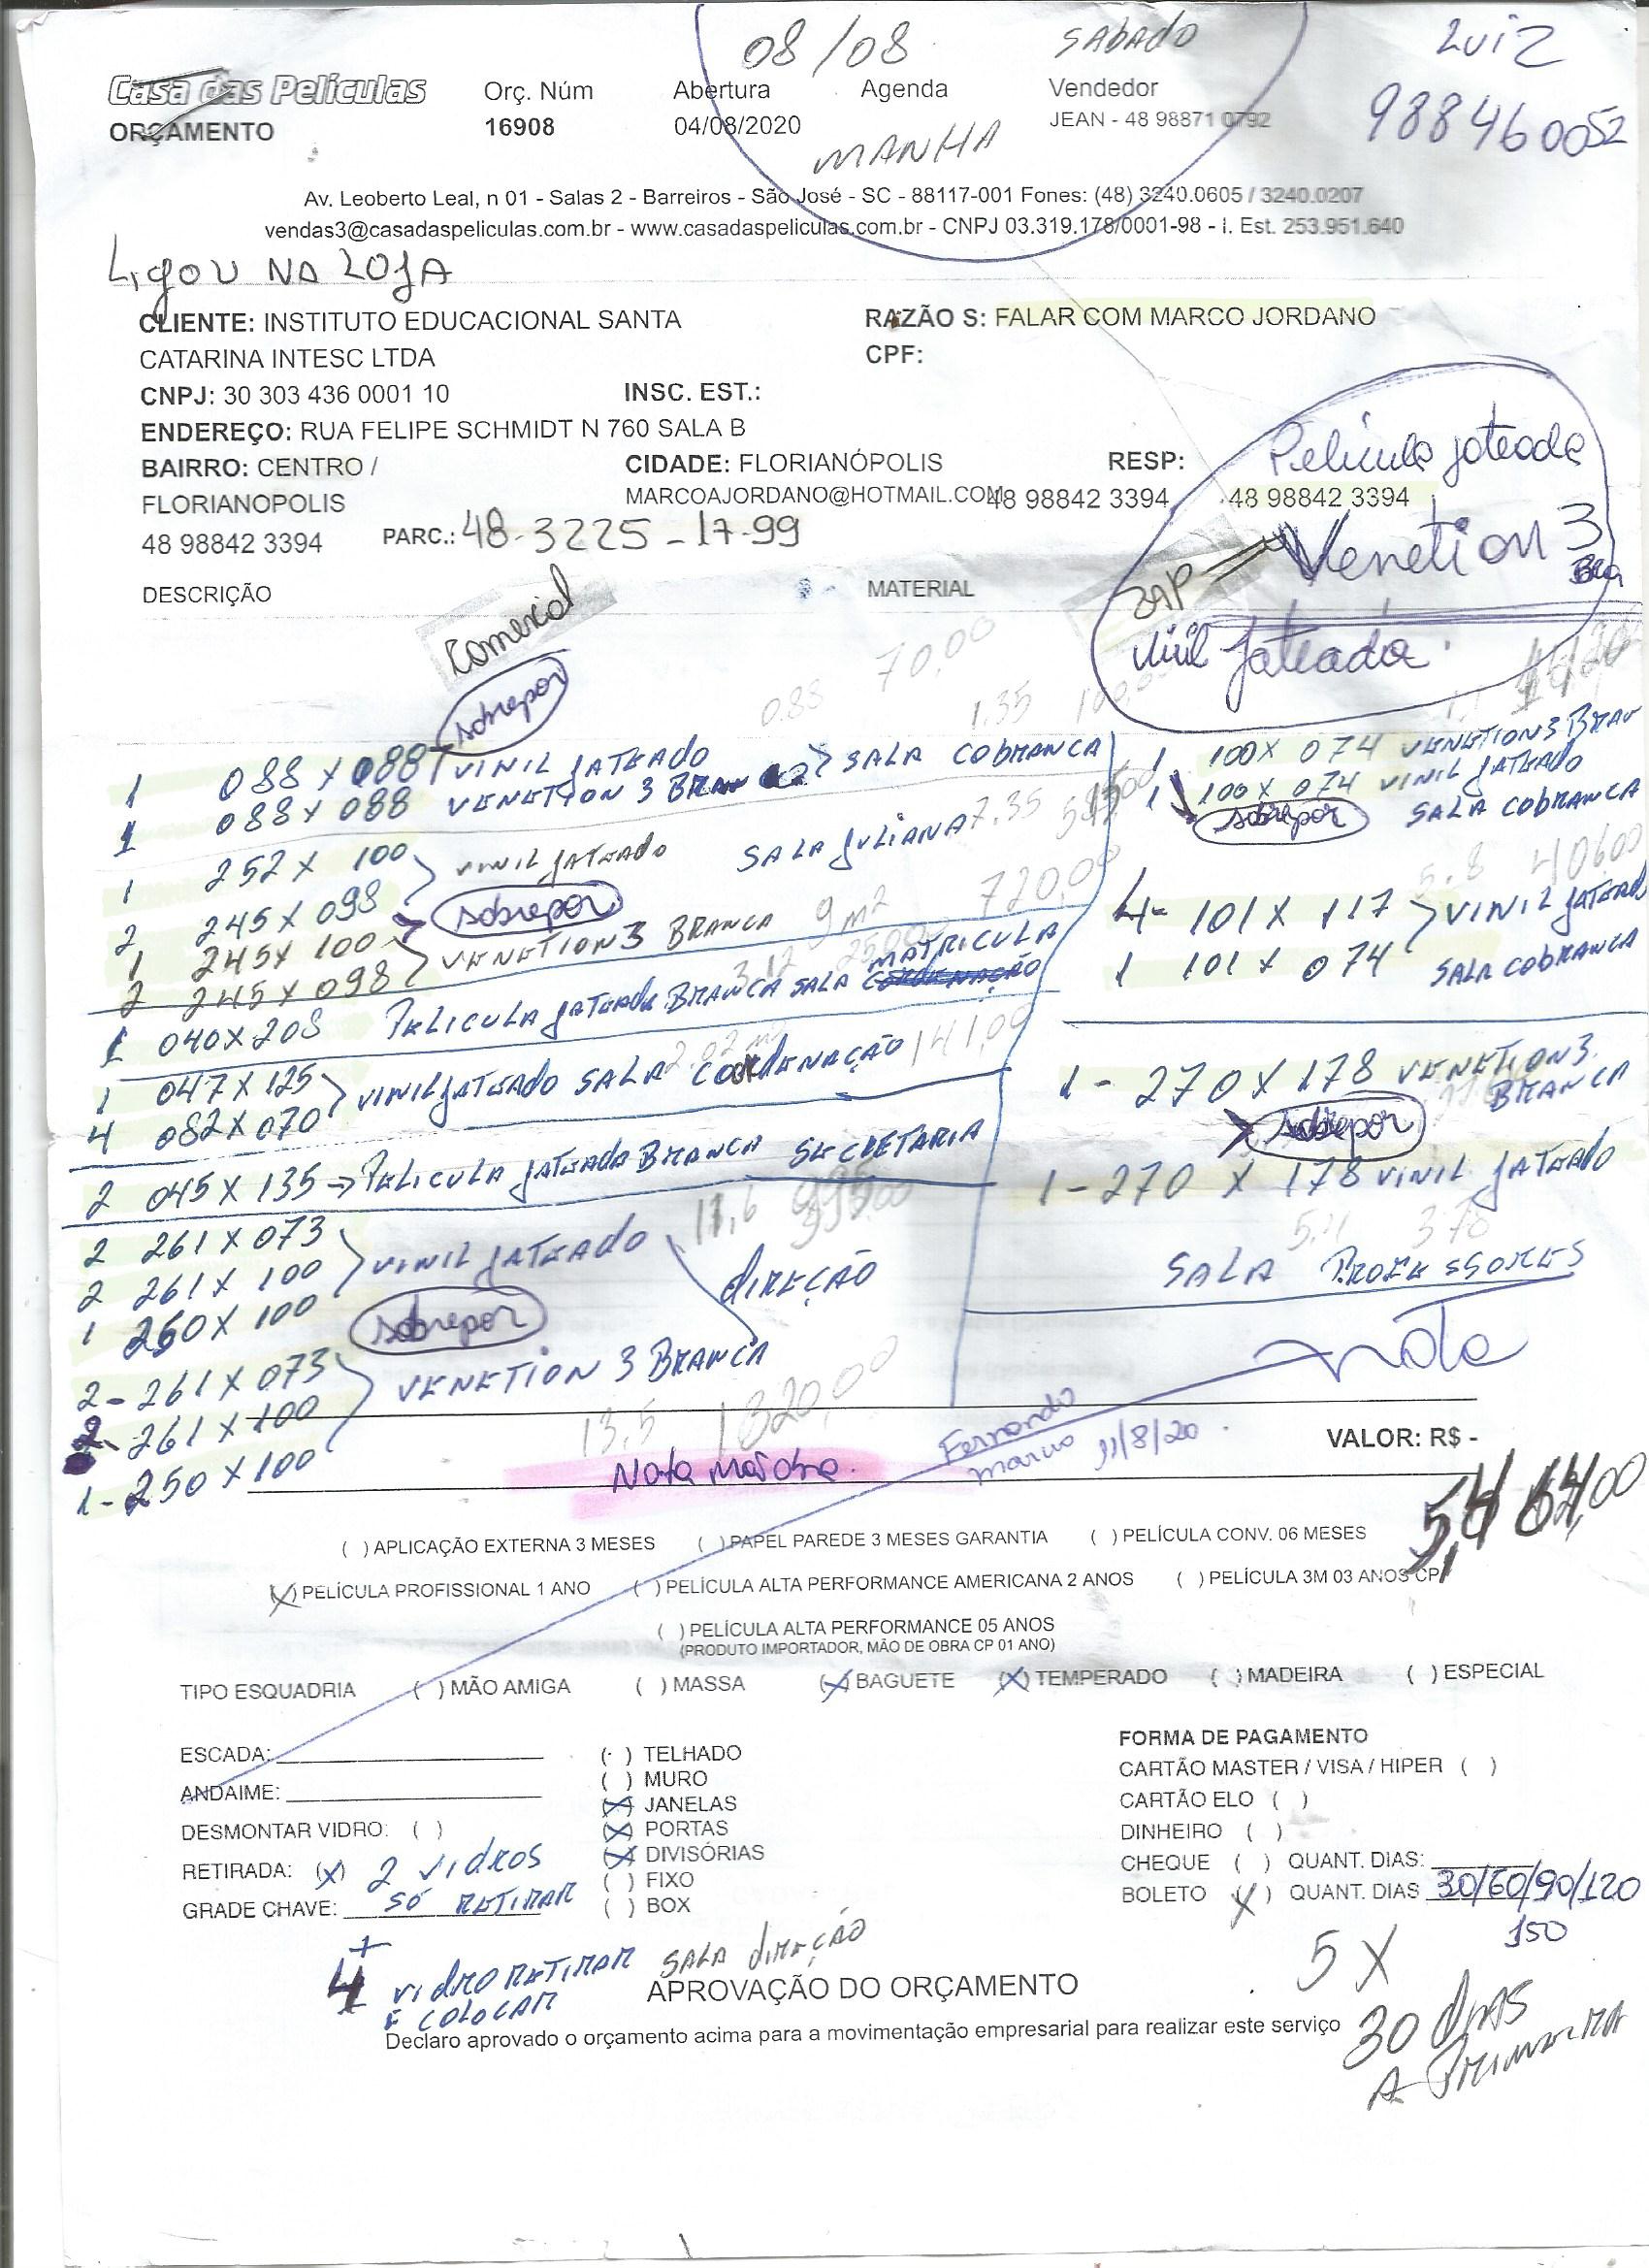 08/08 SABADO LUIZ
Casa das Películas Orç. Núm Abertura Agenda Vendedor 988460052
ORÇAMENTO 16908 04/08/2020 JEAN - 48 98871 0792
MANHA
Av. Leoberto Leal, n 01 - Salas 2 - Barreiros - São José - SC - 88117-001 Fones: (48) 3240.0605 / 3240.0207
vendas3@casadaspeliculas.com.br - www.casadaspeliculas.com.br - CNPJ 03.319.178/0001-98 - i. Est. 253.951.640
LigOU NA LOJA
CLIENTE: INSTITUTO EDUCACIONAL SANTA RAZÃO S: FALAR COM MARCO JORDANO
CATARINA INTESC LTDA CPF:
CNPJ: 30 303 436 0001 10 INSC. EST.:
ENDEREÇO: RUA FELIPE SCHMIDT N 760 SALA B
BAIRRO: CENTRO / CIDADE: FLORIANÓPOLIS RESP: Película jateada
FLORIANOPOLIS MARCOAJORDANO@HOTMAIL.COM 48 98842 3394 48 98842 3394
48 98842 3394 PARC.: 48-3225-17-99 Venetion 3
Bra
DESCRIÇÃO MATERIAL ZAP
Comercial vinil Jateada
70,00
sobrepor 0.88 1.35
1 088 X 088 VINIL JATEADO SALA COBRANCA
1 088 X 088 VENETION 3 BRANCA
1 252 X 100 VINIL JATEADO SALA JULIANA 7.35
2 245 X 098
sobrepor
1 245 X 100 VENETION 3 BRANCA 9m² 720,00
2 245 X 098
1 040 X 208 PELICULA JATEADA BRANCA SALA MATRICULA
3,12
1 047 X 125 VINIL JATEADO SALA COORDENAÇÃO 141,00
4 082 X 070
2 045 X 135 → PELICULA JATEADA BRANCA SECRETARIA
2 261 X 073 VINIL JATEADO 11,6 995,00
2 261 X 100 DIREÇÃO
1 260 X 100
sobrepor
2 - 261 X 073 VENETION 3 BRANCA
2 - 261 X 100 13,5 1320,00
1 - 250 X 100
1 100 X 074 VENETION 3 BRAN
1 100 X 074 VINIL JATEADO
sobrepor SALA COBRANCA
5.8 406,00
4 - 101 X 117 VINIL JATEADO
1 101 X 074 SALA COBRANCA
1 - 270 X 178 VENETION 3
BRANCA
sobrepor
1 - 270 X 178 VINIL JATEADO
378
SALA PROFESSORES
Nota
Nota Mão obra. Fernando
marcio 11/8/20. VALOR: R$ -
( ) APLICAÇÃO EXTERNA 3 MESES ( ) PAPEL PAREDE 3 MESES GARANTIA ( ) PELÍCULA CONV. 06 MESES
(X) PELÍCULA PROFISSIONAL 1 ANO ( ) PELÍCULA ALTA PERFORMANCE AMERICANA 2 ANOS ( ) PELÍCULA 3M 03 ANOS CP
( ) PELÍCULA ALTA PERFORMANCE 05 ANOS
(PRODUTO IMPORTADOR, MÃO DE OBRA CP 01 ANO)
TIPO ESQUADRIA ( ) MÃO AMIGA ( ) MASSA (X) BAGUETE (X) TEMPERADO ( ) MADEIRA ( ) ESPECIAL
ESCADA:
ANDAIME:
DESMONTAR VIDRO: ( )
RETIRADA: (X) 2 VIDROS
GRADE CHAVE: SÓ RETIRAR
( ) TELHADO
( ) MURO
(X) JANELAS
(X) PORTAS
(X) DIVISÓRIAS
( ) FIXO
( ) BOX
FORMA DE PAGAMENTO
CARTÃO MASTER / VISA / HIPER ( )
CARTÃO ELO ( )
DINHEIRO ( )
CHEQUE ( ) QUANT. DIAS:
BOLETO (X) QUANT. DIAS 30/60/90/120
150
+
4 VIDRO RETIRAR SALA DIREÇÃO
E COLOCAR
5X
APROVAÇÃO DO ORÇAMENTO
Declaro aprovado o orçamento acima para a movimentação empresarial para realizar este serviço
30 DIAS
A PRIMEIRA